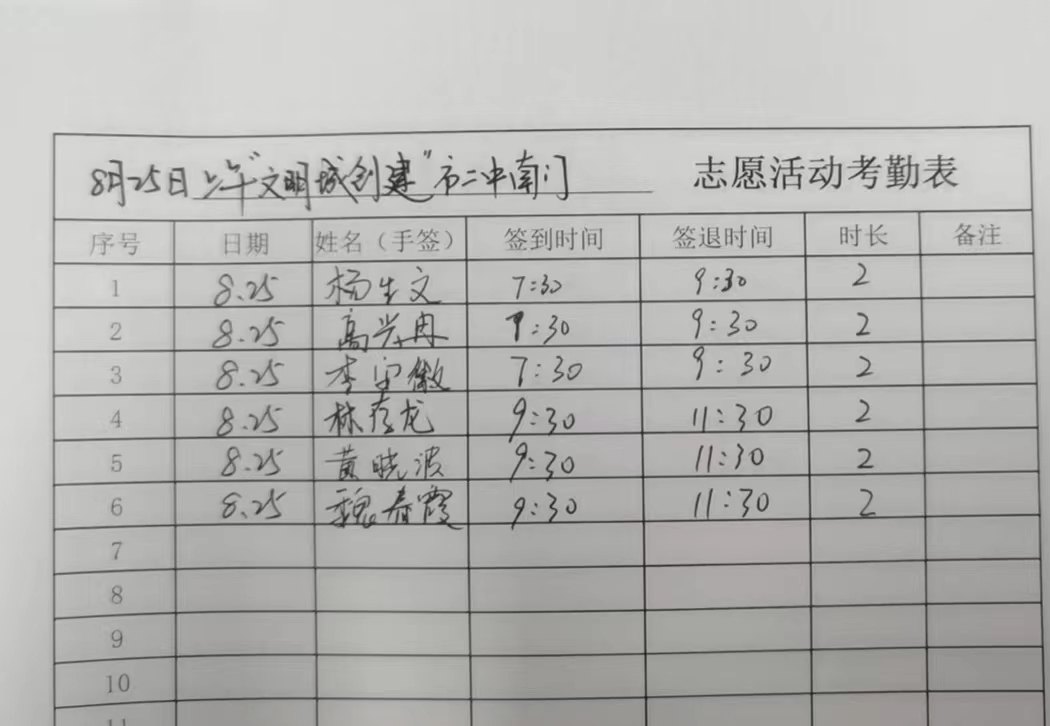 8月25日上午"文明城创建"市二中南门 志愿活动考勤表
序号 日期 姓名（手签） 签到时间 签退时间 时长 备注
1 8.25 杨生文 7:30 9:30 2
2 8.25 高兴冉 7:30 9:30 2
3 8.25 李宇徽 7:30 9:30 2
4 8.25 林存龙 9:30 11:30 2
5 8.25 黄晓波 9:30 11:30 2
6 8.25 魏春霞 9:30 11:30 2
7
8
9
10